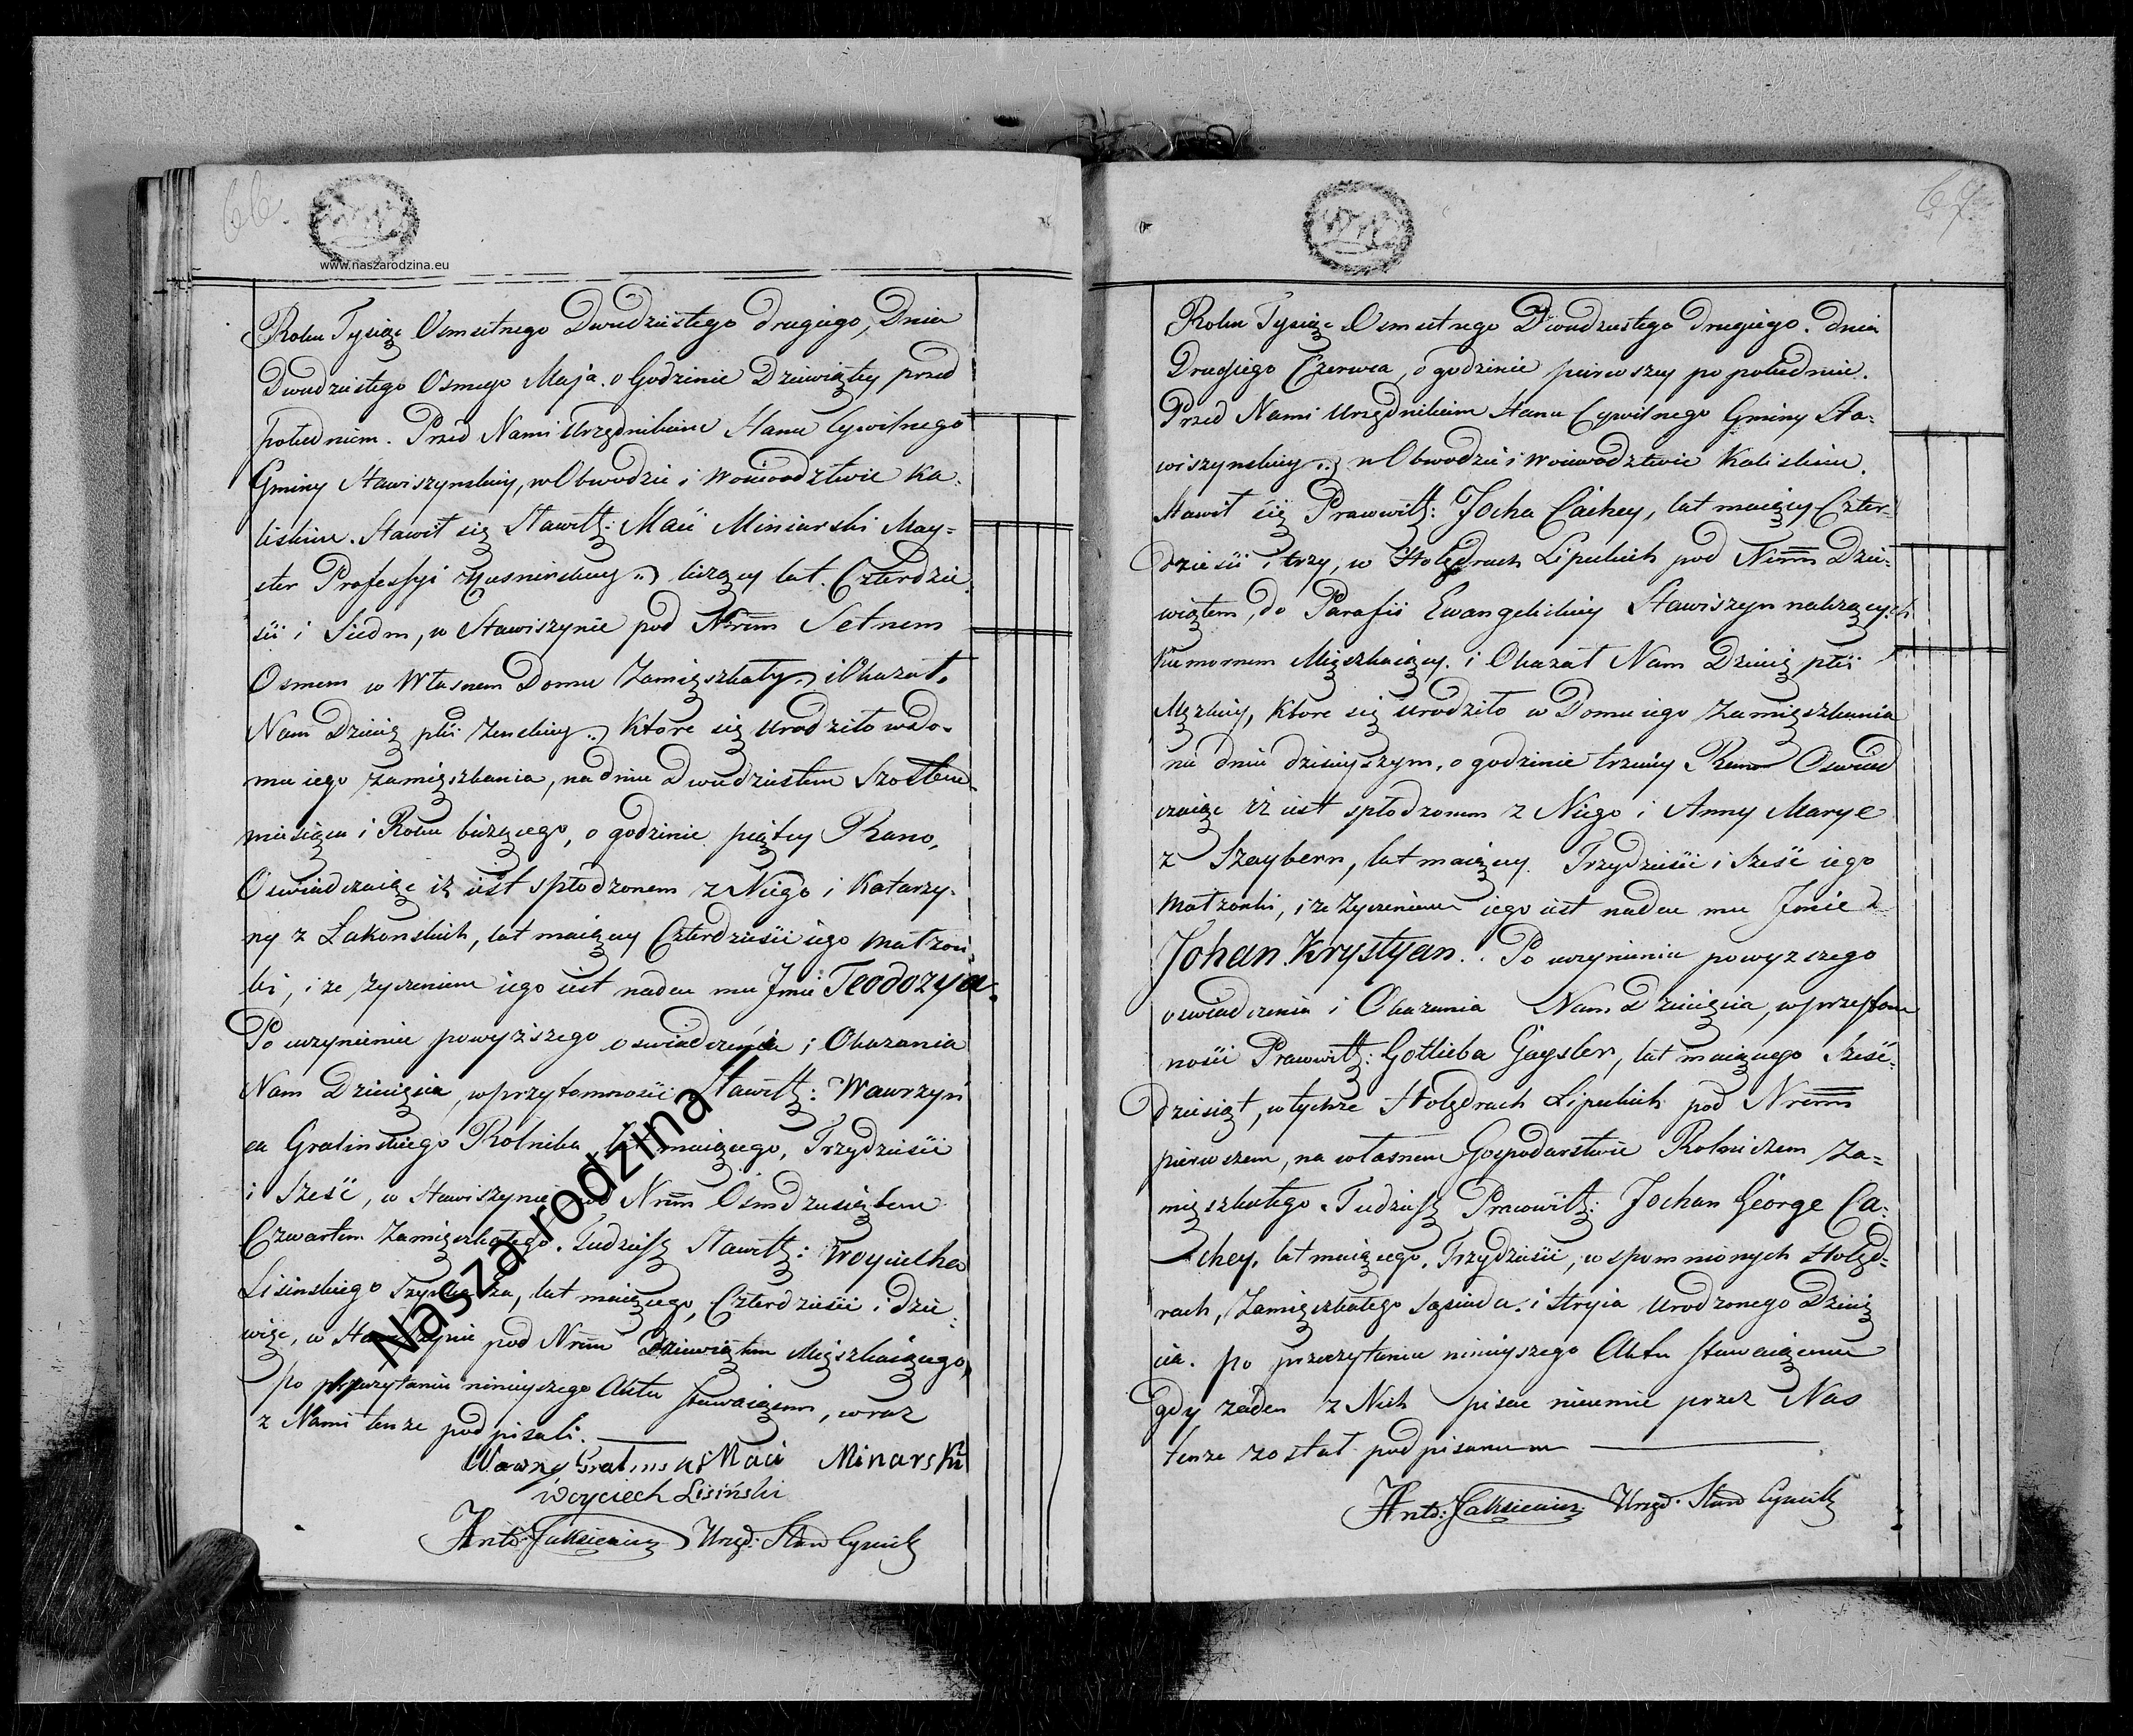 66.
www.naszarodzina.eu
Roku Tysiąc Osmsetnego Dwudziestego drugiego, Dnia
Dwudziestego Osmego Maja. o Godzinie Dziewiątey przed
południem. Przed Nami Urzędnikiem Stanu Cywilnego
Gminy Stawiszynskiey, w Obwodzie i Woiewodztwie Ka-
liskim. Stawił się Sławttz: Maci Miniarski May-
ster Professyi Kusnirskiey liczący lat. Czterdzie-
sci i Siedm, w Stawiszynie pod Nrem Setnem
Osmem w Własnem Domu Zamięszkały i Okazał.
Nam Dziecię płci żenskiey Ktore się urodziło w do-
mu iego zamięszkania, na dniu Dwudziestem Szostem
miesiąca i Roku bieżącego, o godzinie piątey Rano,
Oswiadczaiąc iż iest spłodzonem z Niego i Katarzy-
ny z Łakonskich, lat maiącey Czterdziesci iego małzon-
ki, i że życzeniem iego iest nadac mu Jmie Teodozya.
Po uczynieniu powyższego oswiadczenia i Okazania
Nam Dziecięcia, w przytomnosci Sławttz: Wawrzyń
ca Gralinskiego Rolnika lat maiącego, Trzydziesci
i szesc, w Stawiszynie pod Nrem Osmdziesiątem
Czwartem Zamięszkałego. Tudzież Sławttz: Woyciecha
Lisinskiego lat maiącego, Czterdziesci i dzie-
więc, w Stawiszynie pod Nrem Dziewiątem Mięszkaiącego,
po przeczytaniu ninieyszego Aktu stawaiącem, wraz
z Nami tenze podpisali.
Wawrzy Gralinski Maci Minarski
Woyciech Lisiński
Anto: Jaksiewicz Urzęd: Stanu Cywilg
Nasza rodzina
67.
Roku Tysiąc Osmsetnego Dwudziestego drugiego. dnia
Drugiego Czerwca, o godzinie pierwszey po południu.
Przed Nami Urzędnikiem Stanu Cywilnego Gminy Sta-
wiszynskiey w Obwodzie i Woiewodztwie Kaliskim.
Stawił się Prawwittz: Jocha Cachey, lat maiący Czter-
dziesci i trzy, w Holędrach Lipeckich pod Nrem Dzie-
wiątem, do Parafii Ewangelickiey Stawiszyn należących
Komornem Mięszkaiący. i Okazał Nam Dziecię płci
Męzkiey, Ktore się urodziło w Domu iego Zamięszkania
na dniu dzisieyszym, o godzinie trzeciey Rano Oswiad
czaiąc iż iest spłodzonem z Niego i Anny Marye
z Szaybern, lat maiącey Trzydziesci i szesc iego
Małzonki, i że życzeniem iego iest nadac mu Jmie
Johan. Krystyan. Po uczynieniu powyzszego
oswiadczenia i Okazania Nam dziecięcia, w przytom
nosci Prawwittz: Gotlieba Gaysler, lat maiącego szesc-
dziesiąt, w tychze Holędrach Lipeckich pod Nrem
pierwszem, na własnem Gospodarstwie Rolniczem Za-
mięszkałego. Tudzież Prawowittz: Jochan George Ca-
chey, lat maiącego, Trzydziesci, w spomnionych Holęd-
rach, Zamięszkałego sąsiada. i Stryia Urodzonego Dzieię
cia. po przeczytaniu ninieyszego Aktu stawaiącemu
gdy żaden z Nich pisac nieumie przez Nas
tenze został podpisanem
Anto: Jaksiewicz Urzęd: Stanu Cywilg